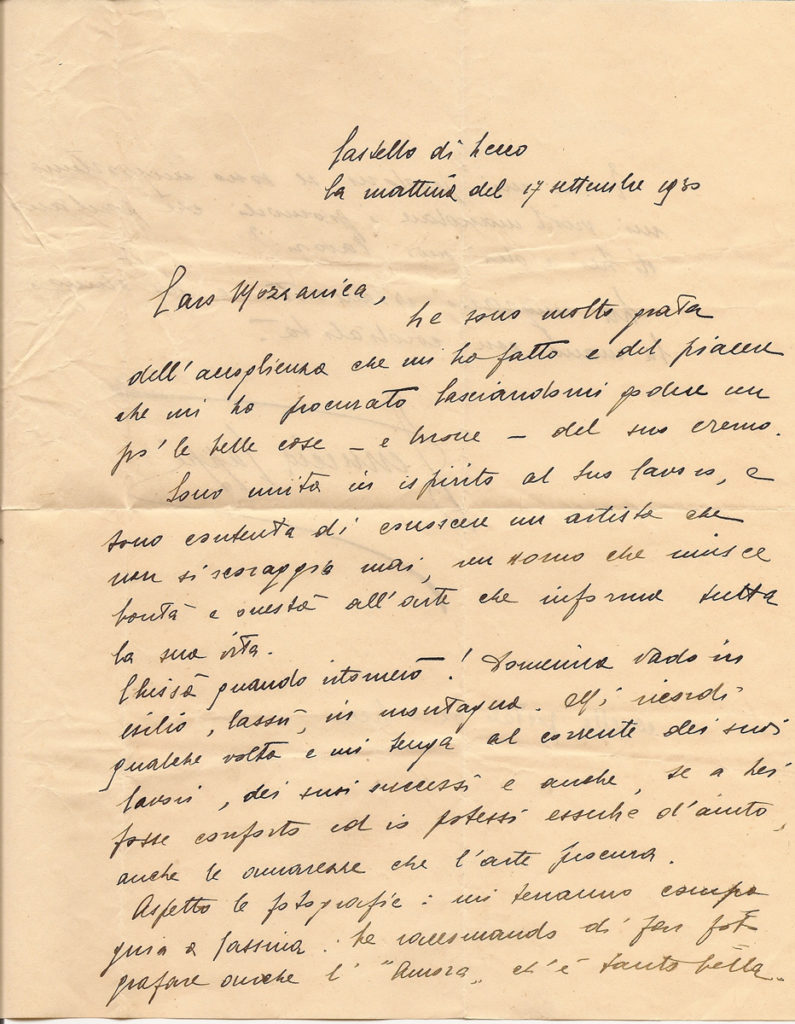 Castello di Lecco
la mattina del 17 settembre 1930
Caro Mozzanica,
Le sono molto grata
dell'accoglienza che mi ha fatto e del piacere
che mi ha procurato lasciandomi godere un
po' le belle cose – e buone – del suo eremo.
Sono unita in ispirito al Suo lavoro, e
sono contenta di conoscere un artista che
non si scoraggia mai, un uomo che unisce
bontà e onestà all'arte che informa tutta
la sua vita.
Chissà quando ritornerò! Domenica vado in
esilio, lassù, in montagna. Mi ricordi
qualche volta e mi tenga al corrente dei suoi
lavori, dei suoi successi e anche, se a Lei
fosse conforto ed io potessi esserle d'aiuto,
anche le amarezze che l'arte procura.
Aspetto le fotografie: mi terranno compa
gnia a Cassina. Le raccomando di far foto
grafare anche l' "Aurora" ch'è tanto bella.